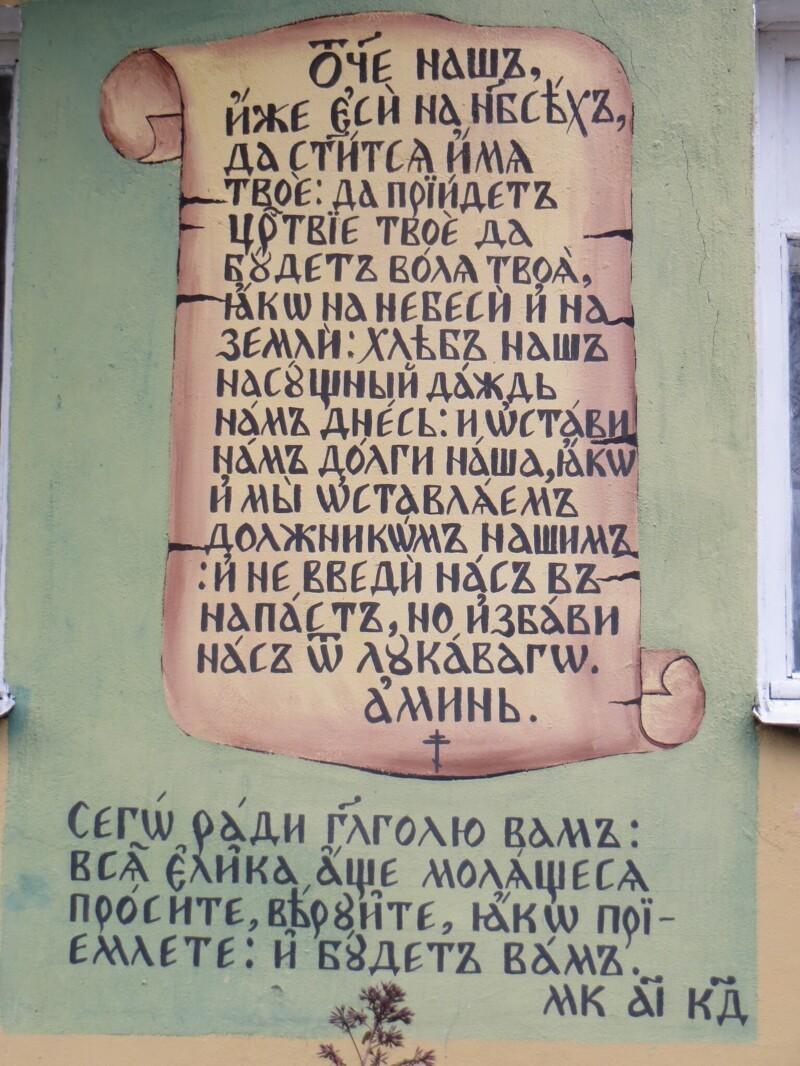 Ѻ҃ч҃е нашъ,
и҆́же є҆сѝ на н҃бсѣ́хъ,
да ст҃и́тсѧ и҆́мѧ
твоѐ: да прїи́детъ
ца҃ртвїе твоѐ да
бꙋ́детъ во́лѧ твоѧ̀,
ꙗ҆́кѡ на небесѝ и҆ на
землѝ: хлѣ́бъ нашъ
насꙋ́щный да́ждь
на́мъ дне́сь: и ѡ҆ста́ви
на́мъ до́лги на́ша, ꙗ҆́кѡ
и҆ мы̀ ѡ҆ставлѧ́емъ
должникѡ́мъ нашимъ
: и҆ не введѝ на́съ въ
напа́сть, но и҆зба́ви
на́съ ѿ лꙋка́вагѡ.
а҆ми́нь.
Сегѡ́ ра́ди г҃лголю вамъ:
всѧ҄ є҆ли́ка а҆́ще молѧ́щесѧ
про́сите, вѣ́рꙋйте, ꙗ҆́кѡ прї-
емлете: и҆ бꙋ́детъ ва́мъ.
мк а҃і к҃д